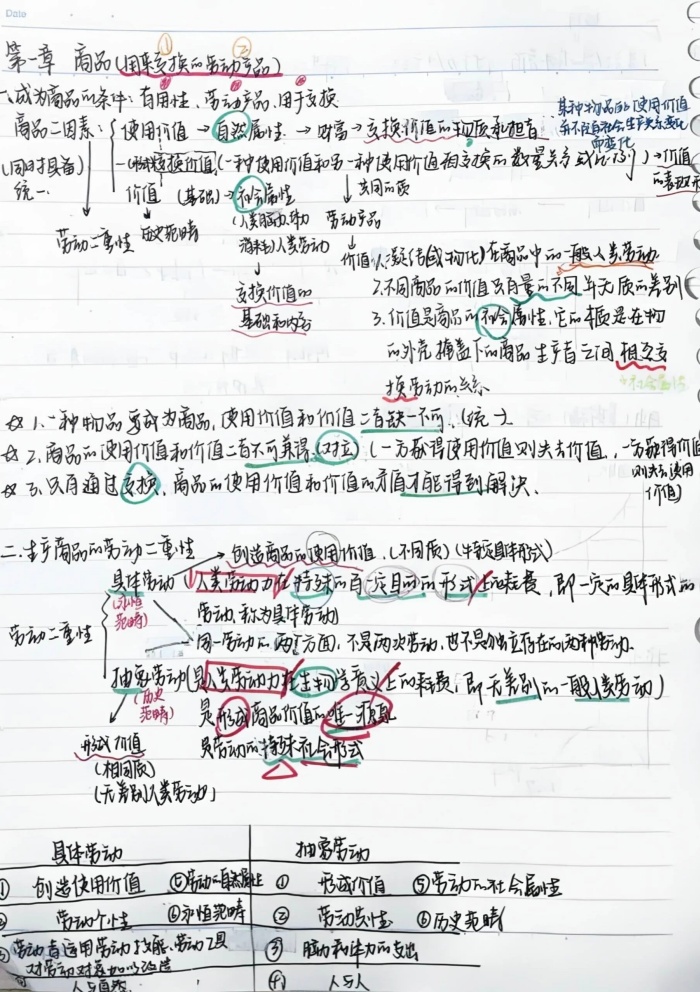 Date
① ②
第一章 商品(用来交换的劳动产品)
一、成为商品的条件:有用性、劳动产品、用于交换
某种物品的使用价值
并不会自社会生产关系变化
而变化
商品二因素: 使用价值 → 自然属性 → 财富 → 交换价值的物质承担者
(同时具备) 交换价值(一种使用价值和另一种使用价值相交换的数量关系或比例) → 价值
统一. 的表现形
价值 (基础) → 社会属性 共同的质
劳动二重性 历史范畴 (人类脑力、体力 劳动产品
消耗)人类劳动 价值1.凝结(或物化)在商品中的一般人类劳动
交换价值的 2.不同商品的价值只有量的不同并无质的差别
基础和内容 3.价值是商品的社会属性,它的本质是在物
的外壳掩盖下的商品生产者之间相互交
换劳动的关系
☆ 1.一种物品要成为商品,使用价值和价值二者缺一不可.(统一).
☆ 2.商品的使用价值和价值二者不可兼得.(对立)(一方获得使用价值则失去价值,一方获得价值
则失去使用
价值)
☆ 3.只有通过交换,商品的使用价值和价值的矛盾才能得到解决.
二.生产商品的劳动二重性 → 创造商品的使用价值.(不同质)(特定具体形式)
具体劳动(人类劳动力在特殊的有一定目的的形式上的耗费,即一定的具体形式的
(永恒
范畴) 劳动,称为具体劳动)
劳动二重性 同一劳动的两个方面,不是两次劳动,也不是独立存在的两种劳动.
抽象劳动(是人类劳动力在生物学意义上的耗费,即无差别的一般人类劳动)
(历史
范畴) 是形成商品价值的唯一源泉
形成价值 是劳动的特殊社会形式
(相同质)
(无差别人类劳动)
具体劳动 抽象劳动
① 创造使用价值 ⑤劳动的自然属性 ① 形成价值 ⑤劳动的社会属性
② 劳动个性 ⑥永恒范畴 ② 劳动共性 ⑥历史范畴
③ 劳动者运用劳动技能、劳动工具 ③ 脑力和体力的支出
对劳动对象加以改造
人与自然. ④ 人与人